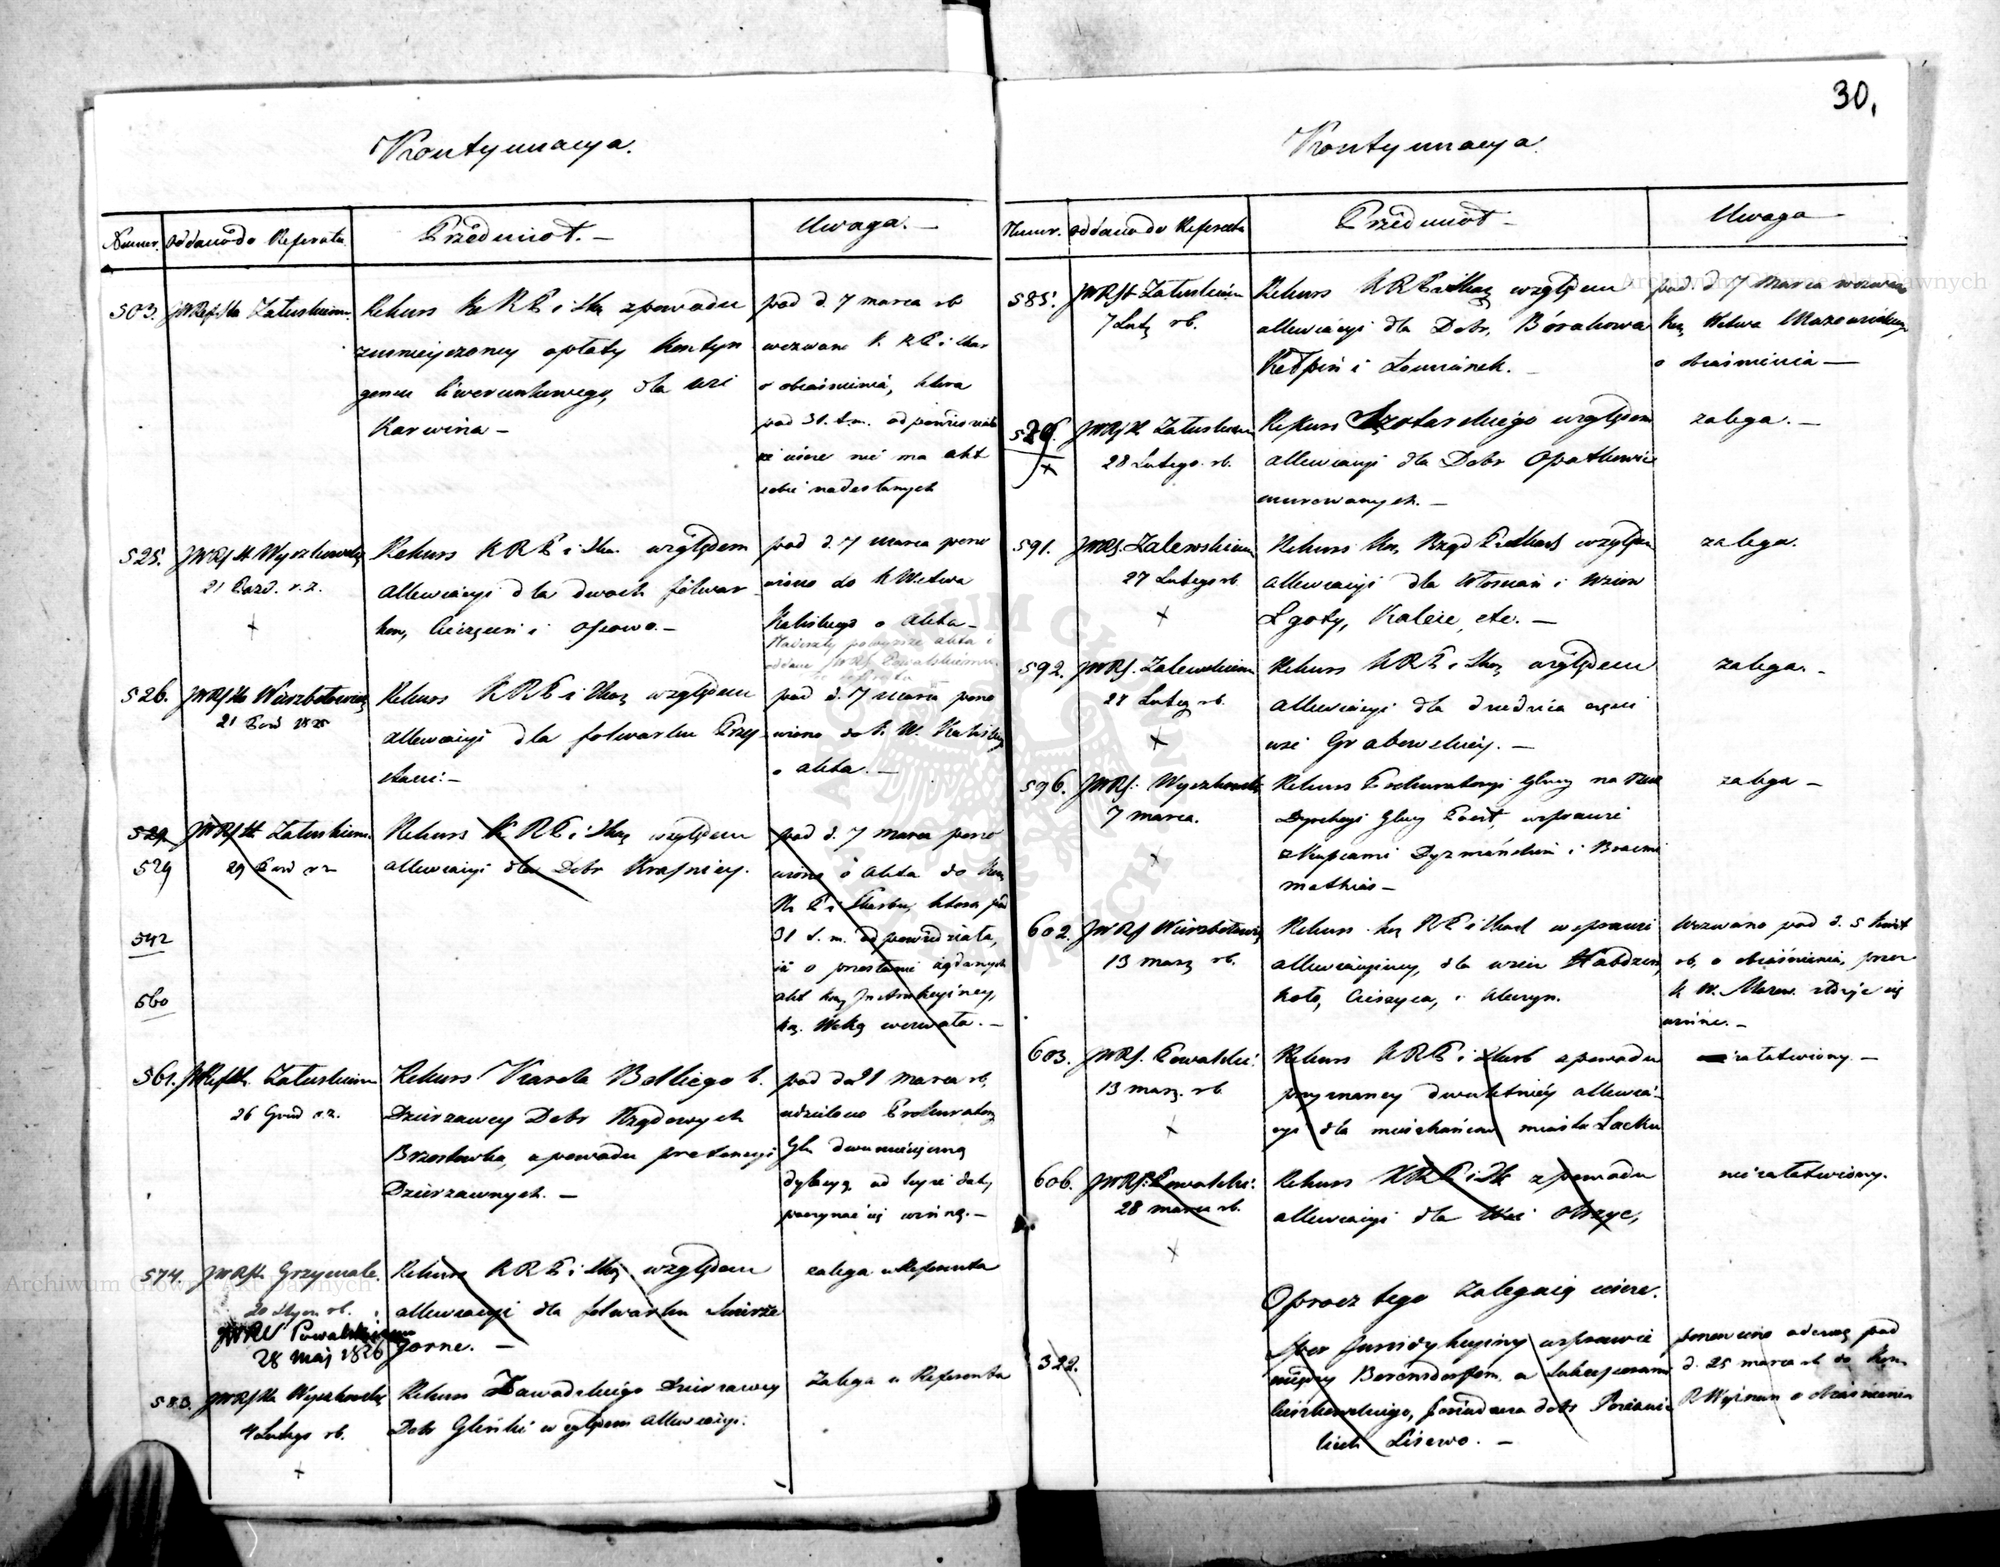 30.
Kontynuacya.
Numer. Oddano do Referatu Przedmiot. — Uwaga. —
503. Załuskiemu
Rekurs KRP i Skar z powodu
zmnieyszoney opłaty kontyn
gensu liwerunkowego, dla wsi
Karwina —
pod d. 7 marca rb
wezwano K. RP i Skar
o obiaśnienie, która
pod 31. t.m. odpowiedziała
że nie ma akt
sobie nadesłanych
525. JWRfSt Wyczchowski
21 Pazd. r. z.
+
Rekurs KRP i Skar względem
allewiacyi dla dwóch folwar
ków, i Osowo. —
pod d. 7 marca pono
wiono do K Wdztwa
Kaliskiego o akta —
Nadeszły powyższe akta i
oddane JWRf. Powalskiemu
526. JWRfSt Wierzbołowicz
21 Paz 1825
Rekurs KRP i Skar względem
allewiacyi dla folwarku Przy
stani: —
pod d. 7 marca pono
wiono do K. W. Kalisk
o akta. —
529
JWRfSt Załuskiemu
29 Pazd rz
Rekurs KRP i Skar względem
allewiacyi dla Dobr Kraśnicy.
pod d. 7 marca pono
wiono o akta do Kom
R P i Skarbu, która pod
31 t. m. odpowiedziała,
iż o przesłanie żądanych
akt Instrukcyiney,
wezwała. —
542
560
561. Załuskiemu
26 Grud rz.
Rekurs Karola Belliego b.
Dzierzawcy Dobr Rządowych
Brzostówka, z powodu pretensyi
Dzierzawnych. —
pod da 21 marca rb.
udzielono Prokuratory
Gln dwumiesięczną
dylacyą od teyże daty
poczynać się winną. —
574. JWRfSt Grzymale.
20 Stycz rb.
JWRf Powalskiemu
28 maj 1826
Rekurs KRP i Skar względem
allewiacyi dla folwarku Smirze
Gorne. —
zalega u Referenta
583. JWRfSt Wyczchowski
4 Lutego rb.
+
Rekurs Zawadzkiego Dzierzawcy
Dobr Glinki względem allewiacyi:
Zalega u Referenta
Kontynuacya.
Numer. Oddano do Referatu Przedmiot — Uwaga —
585. JWRfSt Załuskiemu
7 Lutg rb.
Rekurs KRP i Skar względem
allewiacyi dla Dobr, Borakowa
Kełpin i Łomianek.
pod. d 7 Marca wezwano
Kom Wdztwa Mazowieckiego
o obiaśnienia —
586.
+
JWRfSt Załuskiemu
28 Lutego. rb.
Rekurs względem
allewiacyi dla Dobr Opatkowic
murowanych. —
zalega. —
591. JWRf. Zalewskiemu
27 Lutego rb
+
Rekurs względem
allewiacyi dla Włoscian i Wsiow
Lgoty, Kalcie, etc. —
zalega.
592. JWRf. Zalewskiemu
28 Lutg rb.
+
Rekurs KRP i Skar względem
allewiacyi dla dziedzica części
wsi Grabowskiey. —
zalega. —
596. JWRf: Wyczchowski
7 marca.
+
Rekurs Prokuratoryi Glney na rzecz
Dyrekcyi Glney Poczt, w sprawie
z Kupcami Dyzmańskim i Bracmi
mathias —
zalega —
602. JWRf Wierzbołowicz
13 marz rb.
Rekurs KRP i Skarb w sprawie
allewiacyiney, dla wsiow Habdzin,
Koło, Cieszyca, i Obory.
Wezwano pod d. 5 Kwiet
rb, o obiaśnienie, przez
K W. Mazow. zdaje się
winne. —
603. JWRf. Powalski:
13 marz. rb
+
Rekurs KRP i Skarb z powodu
przyznaney dwuletniéy allewia-
cyi dla mieszkańców miasta Łacku
załatwiony. —
606. JWRf: Powalski:
28 marca rb.
+
Rekurs KRP i Sk z powodu
allewiacyi dla Wsi Obrzyc,
nie załatwiony.
Oprócz tego Zalegaią wsiow.
322.
Spor Juridykcyiny w sprawie
między Berensdorfem, a Sukcessorami
Cieszkowskiego, posiadacza dobr
Lisewo. —
ponowiono odezwę pod
d. 25 marca rb do Kom
R Woienney o obiaśnienie